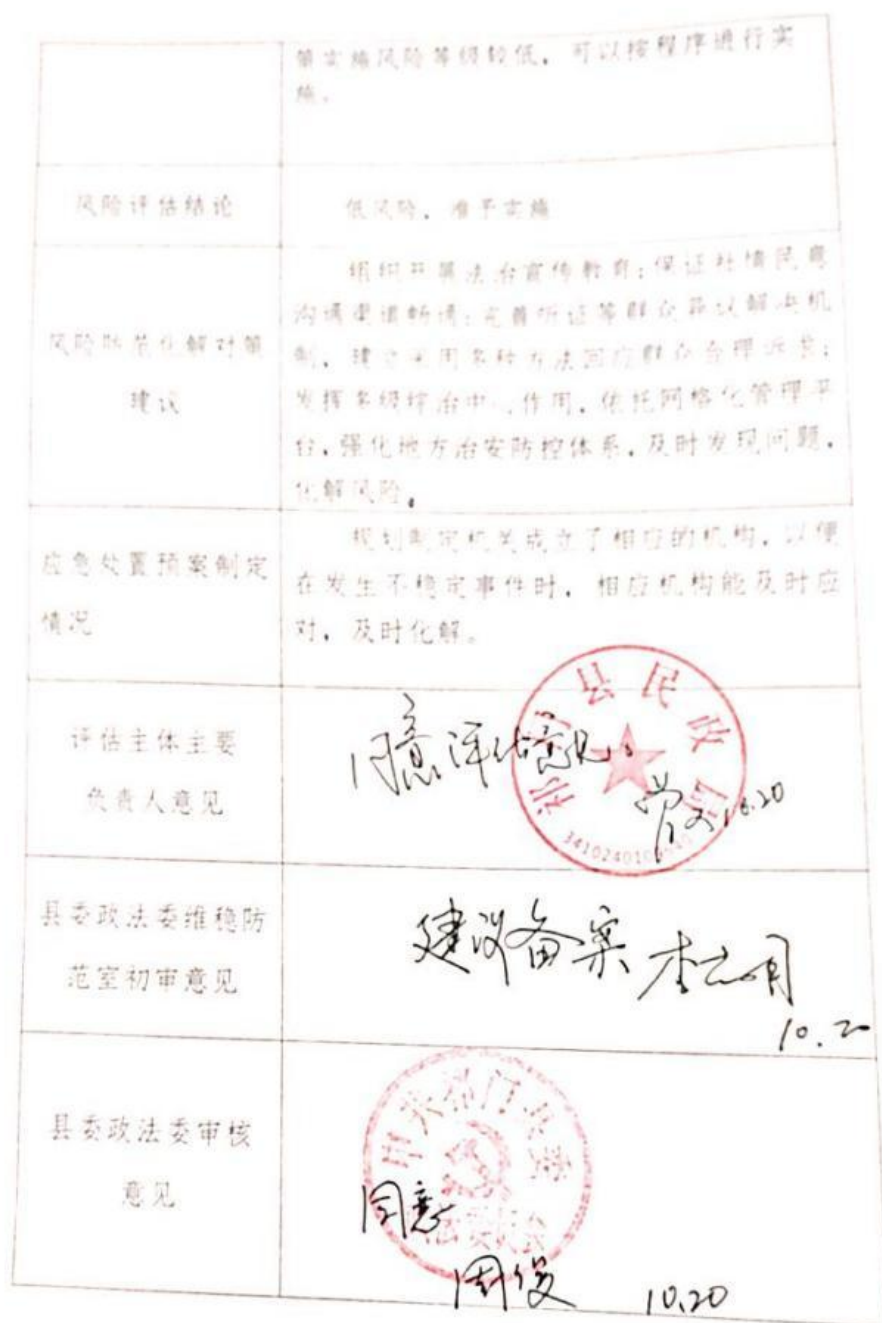 策实施风险等级较低，可以按程序进行实
施。
风险评估结论
低风险，准予实施
风险防范化解对策
建议
组织开展法治宣传教育；保证社情民意
沟通渠道畅通；完善听证等群众异议解决机
制，建立采用多种方法回应群众合理诉求；
发挥多级综治中心作用，依托网格化管理平
台，强化地方治安防控体系，及时发现问题，
化解风险。
应急处置预案制定
情况
规划制定机关成立了相应的机构，以便
在发生不稳定事件时，相应机构能及时应
对，及时化解。
评估主体主要
负责人意见
同意评估意见。
祁门县民政局
10.20
县委政法委维稳防
范室初审意见
建议备案
10.20
县委政法委审核
意见
中共祁门县委
政法委员会
同意
周俊 10.20